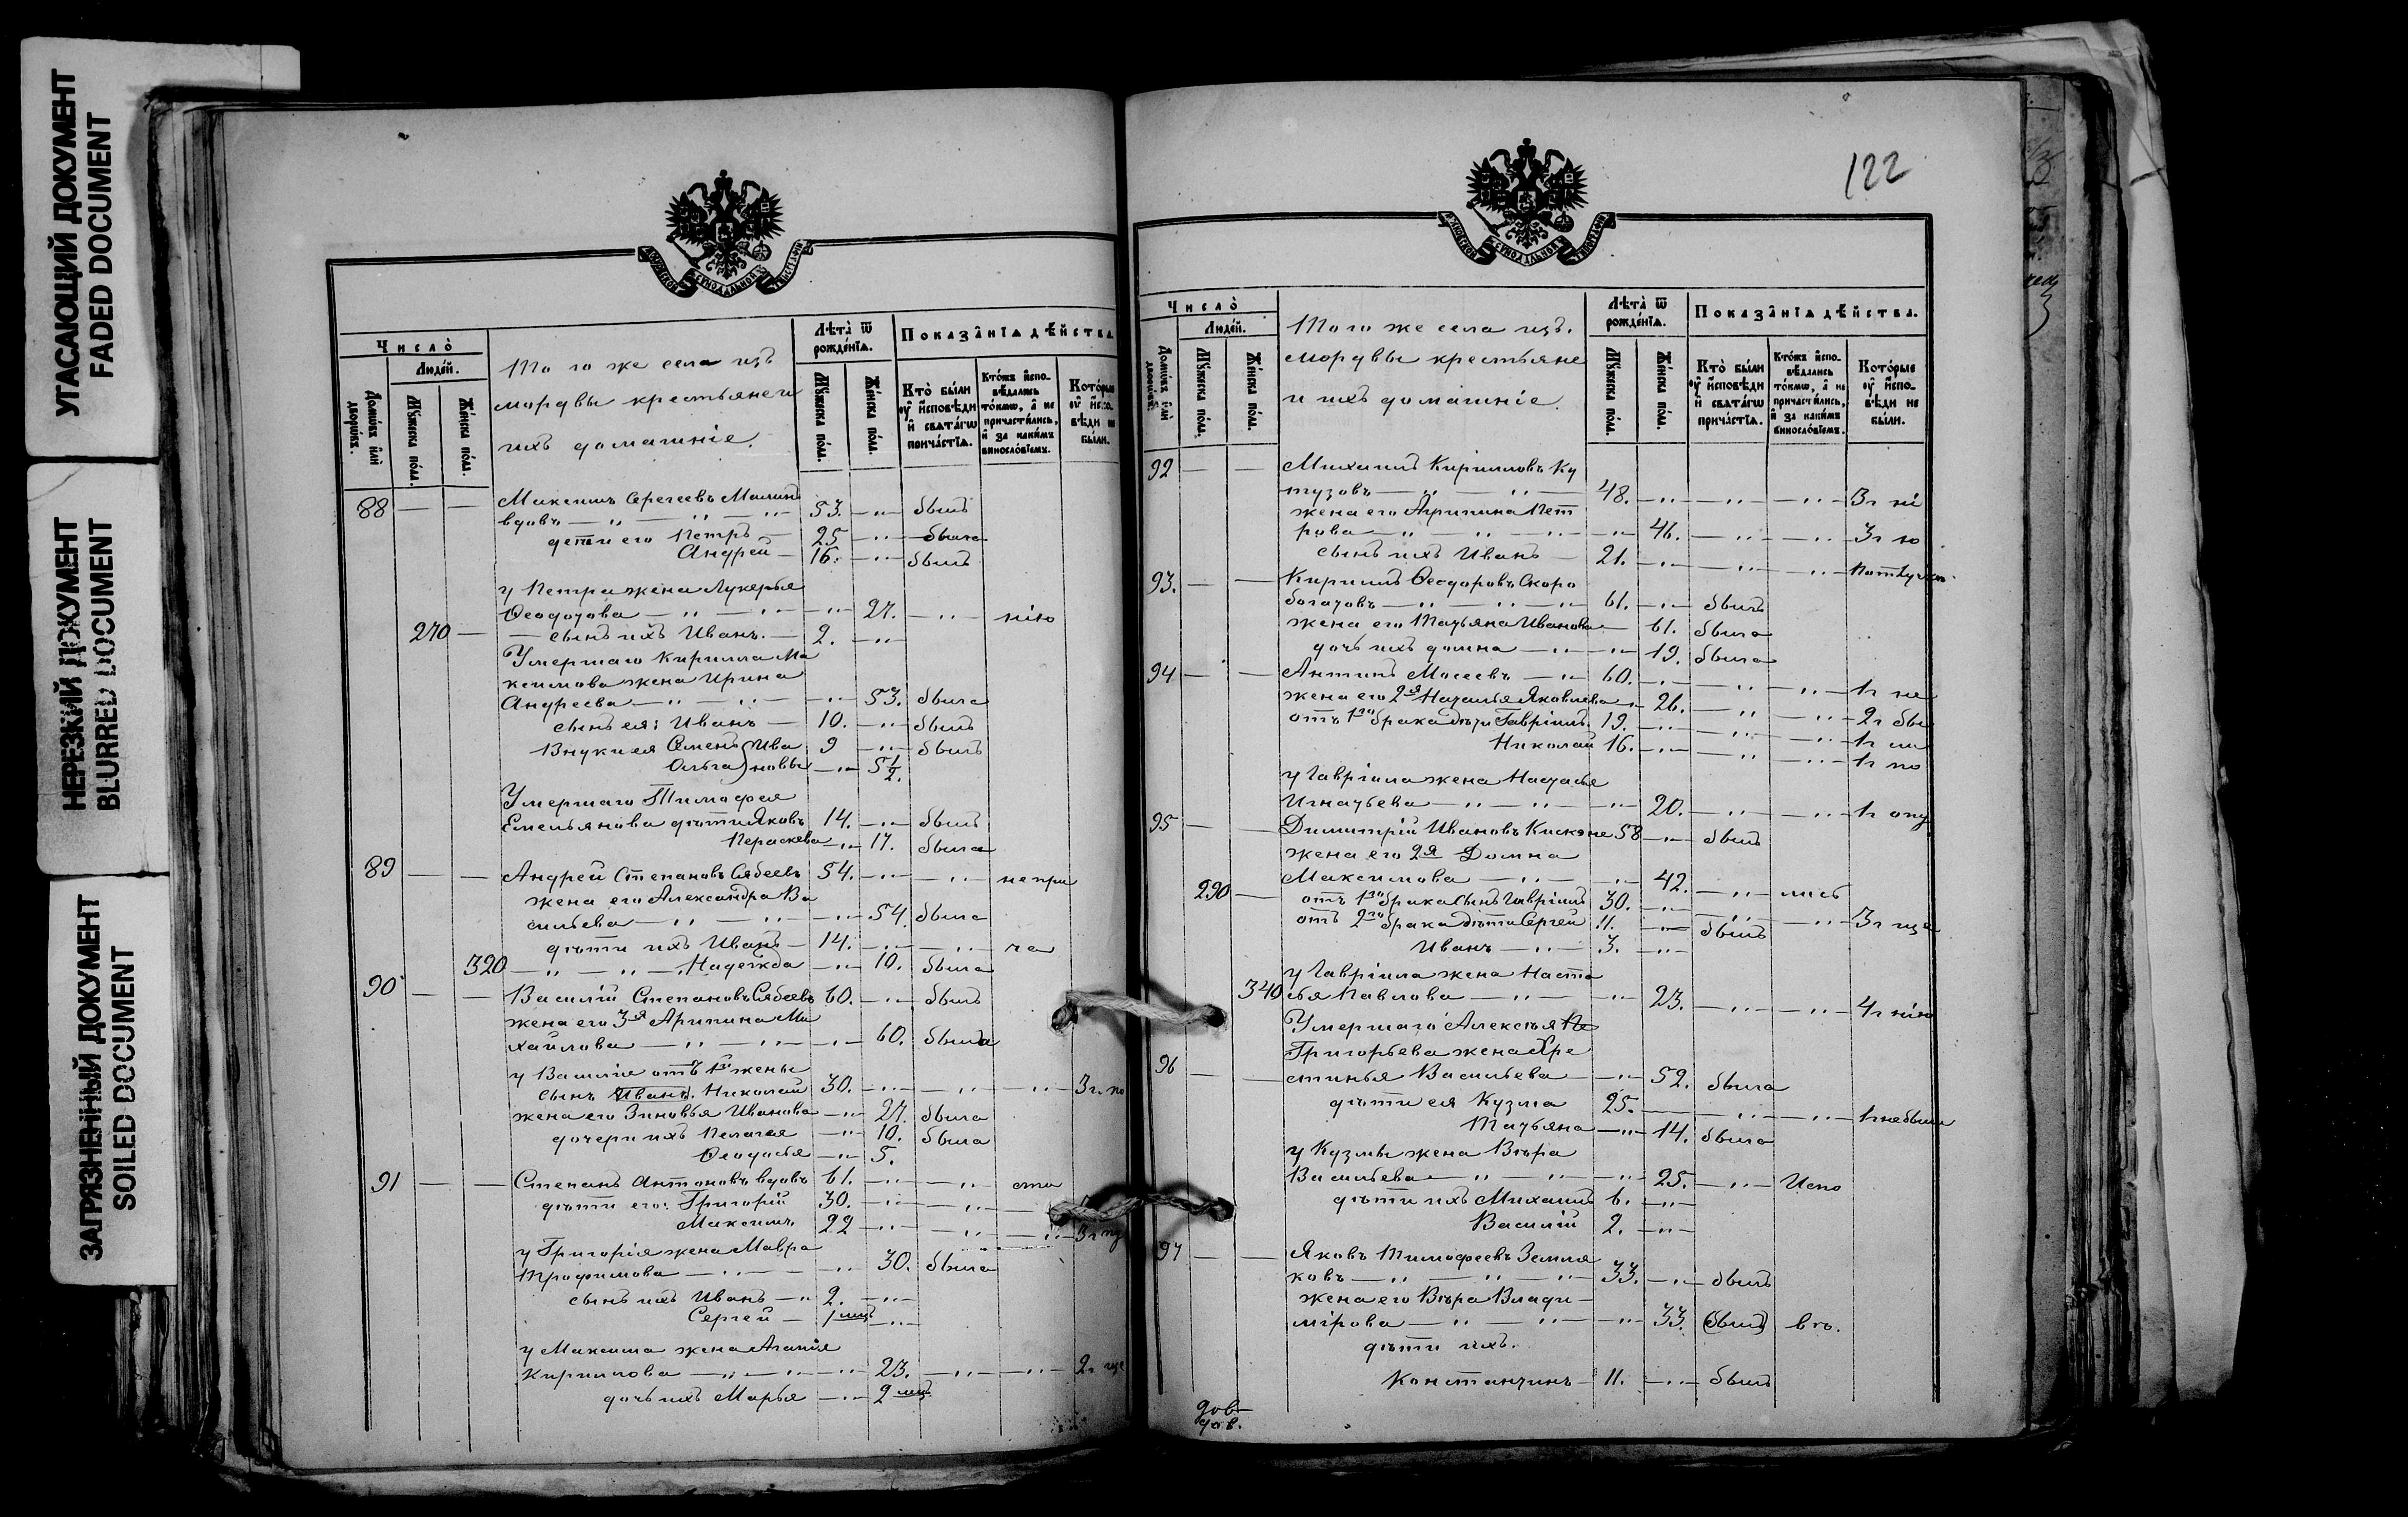 УГАСАЮЩИЙ ДОКУМЕНТ
FADED DOCUMENT
НЕРЕЗКИЙ ДОКУМЕНТ
BLURRED DOCUMENT
ЗАГРЯЗНЕННЫЙ ДОКУМЕНТ
SOILED DOCUMENT
Число̀
Людей.
Домѡвъ или дворѡвъ.
Мꙋжеска полꙋ.
Женска полꙋ.
Того же села изъ
мордвы крестьяне и
ихъ домашніе.
Лѣта̀ ѿ рождéнїѧ.
Мꙋжеска полꙋ.
Женска полꙋ.
Показа́нїѧ дѣ́йства.
Кто̀ бы́ли ᲂу҆ и҆сповѣди и҆ свѧта́гѡ прича́стїѧ.
Кто́жъ и҆спо-вѣдались то́кмѡ, а҆ не причасти́лись, и҆ за каки́мъ винослóвїемъ.
Кото́рые ᲂу҆ и҆спо-вѣди не бы́ли.
88 — — Максимъ Сергеевъ
вдовъ — 53. был
дети его Петръ — 25 была
Андрей — 16. былъ
у Петра жена Лукерья
Ѳеодотова — 27. нію
270 — сынъ ихъ Иванъ. — 2.
Умершаго Кирилла Ма
ксимова жена Ирина
Андреева — 53. была
сынъ ея: Иванъ — 10. былъ
Внуки ея Семенъ Ива 9 былъ
Ольга новы 5 1/2.
Умершаго Тимофея
Емельянова дѣти Яковъ 14. былъ
Пераскева 17. была
89 — — Андрей Степановъ Сябеевъ 54. непри
жена его Александра Ва
сильева — 54. была
дѣти ихъ Иванъ — 14. ча
320 Надежда 10. была
90 — — Василій Степановъ Сябеевъ 60. былъ
жена его 3я Арипина Ми
хайлова — 60. была
у Василія отъ 1й жены
сынъ Иванъ. Николай 30. 3г. по
жена его Зиновья Иванова 27. была
дочери ихъ Пелагея 10. была
Ѳеодосья 5.
91 — — Степанъ Антоновъ вдовъ 61.
дѣти его: Григорій 30.
Максимъ 22
у Григорія жена Мавра
Трофимова — 30. была
сынъ ихъ Иванъ 2.
Сергей — 1 мцъ
у Максима жена Агапія
Кирилова — 23. 2г
дочь ихъ Марья 9 мцъ
122
Число̀
Людей.
Домѡвъ или дворѡвъ.
Мꙋжеска полꙋ.
Женска полꙋ.
Того же села изъ.
мордвы крестьяне
и ихъ домашніе.
Лѣта̀ ѿ рождéнїѧ.
Мꙋжеска полꙋ.
Женска полꙋ.
Показа́нїѧ дѣ́йства.
Кто̀ бы́ли ᲂу҆ и҆сповѣди и҆ свѧта́гѡ прича́стїѧ.
Кто́жъ и҆спо-вѣдались то́кмѡ, а҆ не причасти́лись, и҆ за каки́мъ винослóвїемъ.
Кото́рые ᲂу҆ и҆спо-вѣди не бы́ли.
92 — — Михаилъ Кирилловъ Ку
тузовъ — 48. 3г ні
жена его Агрипина Пет
рова — 46. 3г ю
сынъ ихъ Иванъ — 21.
93. — — Кирилъ Ѳеодоровъ Скоро
богатовъ — 61. былъ
жена его Татьяна Иванова 61. была
дочь ихъ Домна — 19. была
94 — — Антипъ Мосеевъ — 60. 1г не
жена его 2я Наталья Яковлева 26. 2г бы
отъ 1го брака дѣти Гавріилъ 19. 1г
Николай 16. 1г по
у Гавріила жена Настасья
Игнатьева — 20. 1г
95 — — Димитрій Ивановъ 58 былъ
жена его 2я Домна
Максимова — 42. лись
290 — отъ 1го брака сынъ Гавріилъ 30. 3г
отъ 2го брака дѣти Сергей 11. былъ
Иванъ — 3.
у Гавріила жена Наста
340 сья Павлова — 23. 4г нію
Умершаго Алексѣя
Григорьева жена Хре
96 — — стинья Васильева 52. была
дѣти ея Кузма 25. 1г небыли
Татьяна 14. была
у Кузмы жена Вѣра
Васильева — 25. Испо
дѣти ихъ Михаилъ 6.
Василій 2.
97 — — Яковъ Тимофеевъ Земля
ковъ — 33. былъ
жена его Вѣра Влади
мірова — 33. былъ вѣ.
дѣти ихъ.
Константинъ — 11. былъ